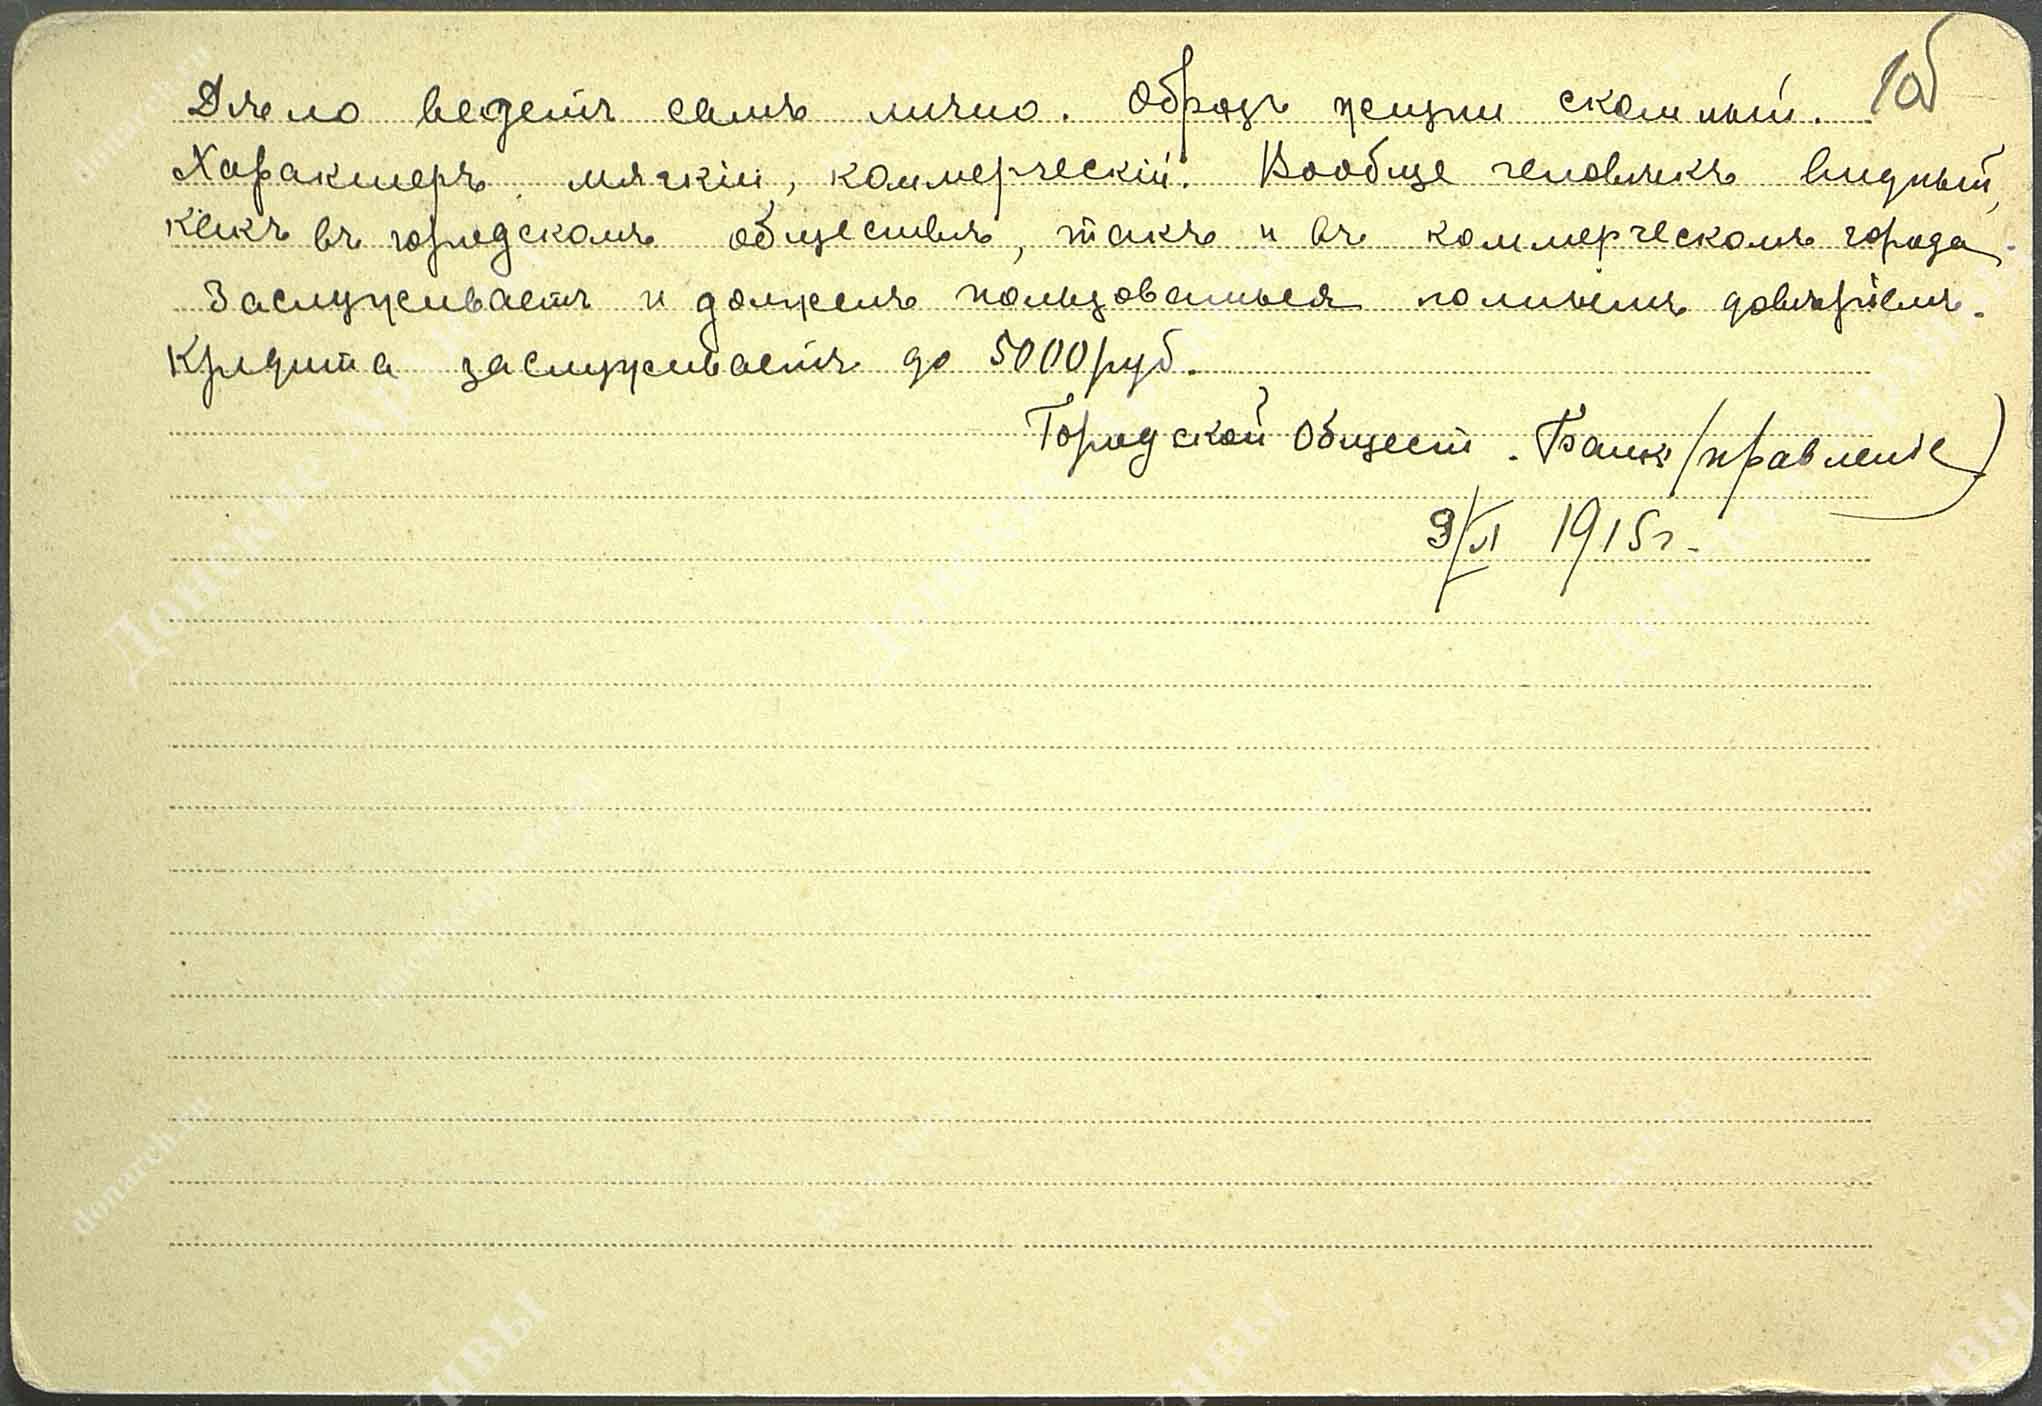 Дѣло ведетъ самъ лично. Образъ жизни скромный. 10б
Характеръ мягкій, коммерческій. Вообще человѣкъ видный,
какъ въ городскомъ обществѣ, такъ и въ коммерческомъ города.
Заслуживаетъ и долженъ пользоваться полнымъ довѣріемъ.
Кредита заслуживаетъ до 5000 руб.
Городской Общест. Банк (правленіе)
9/VI 1915 г.